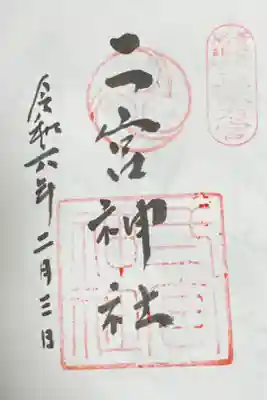 二宮神社
令和六年二月三日